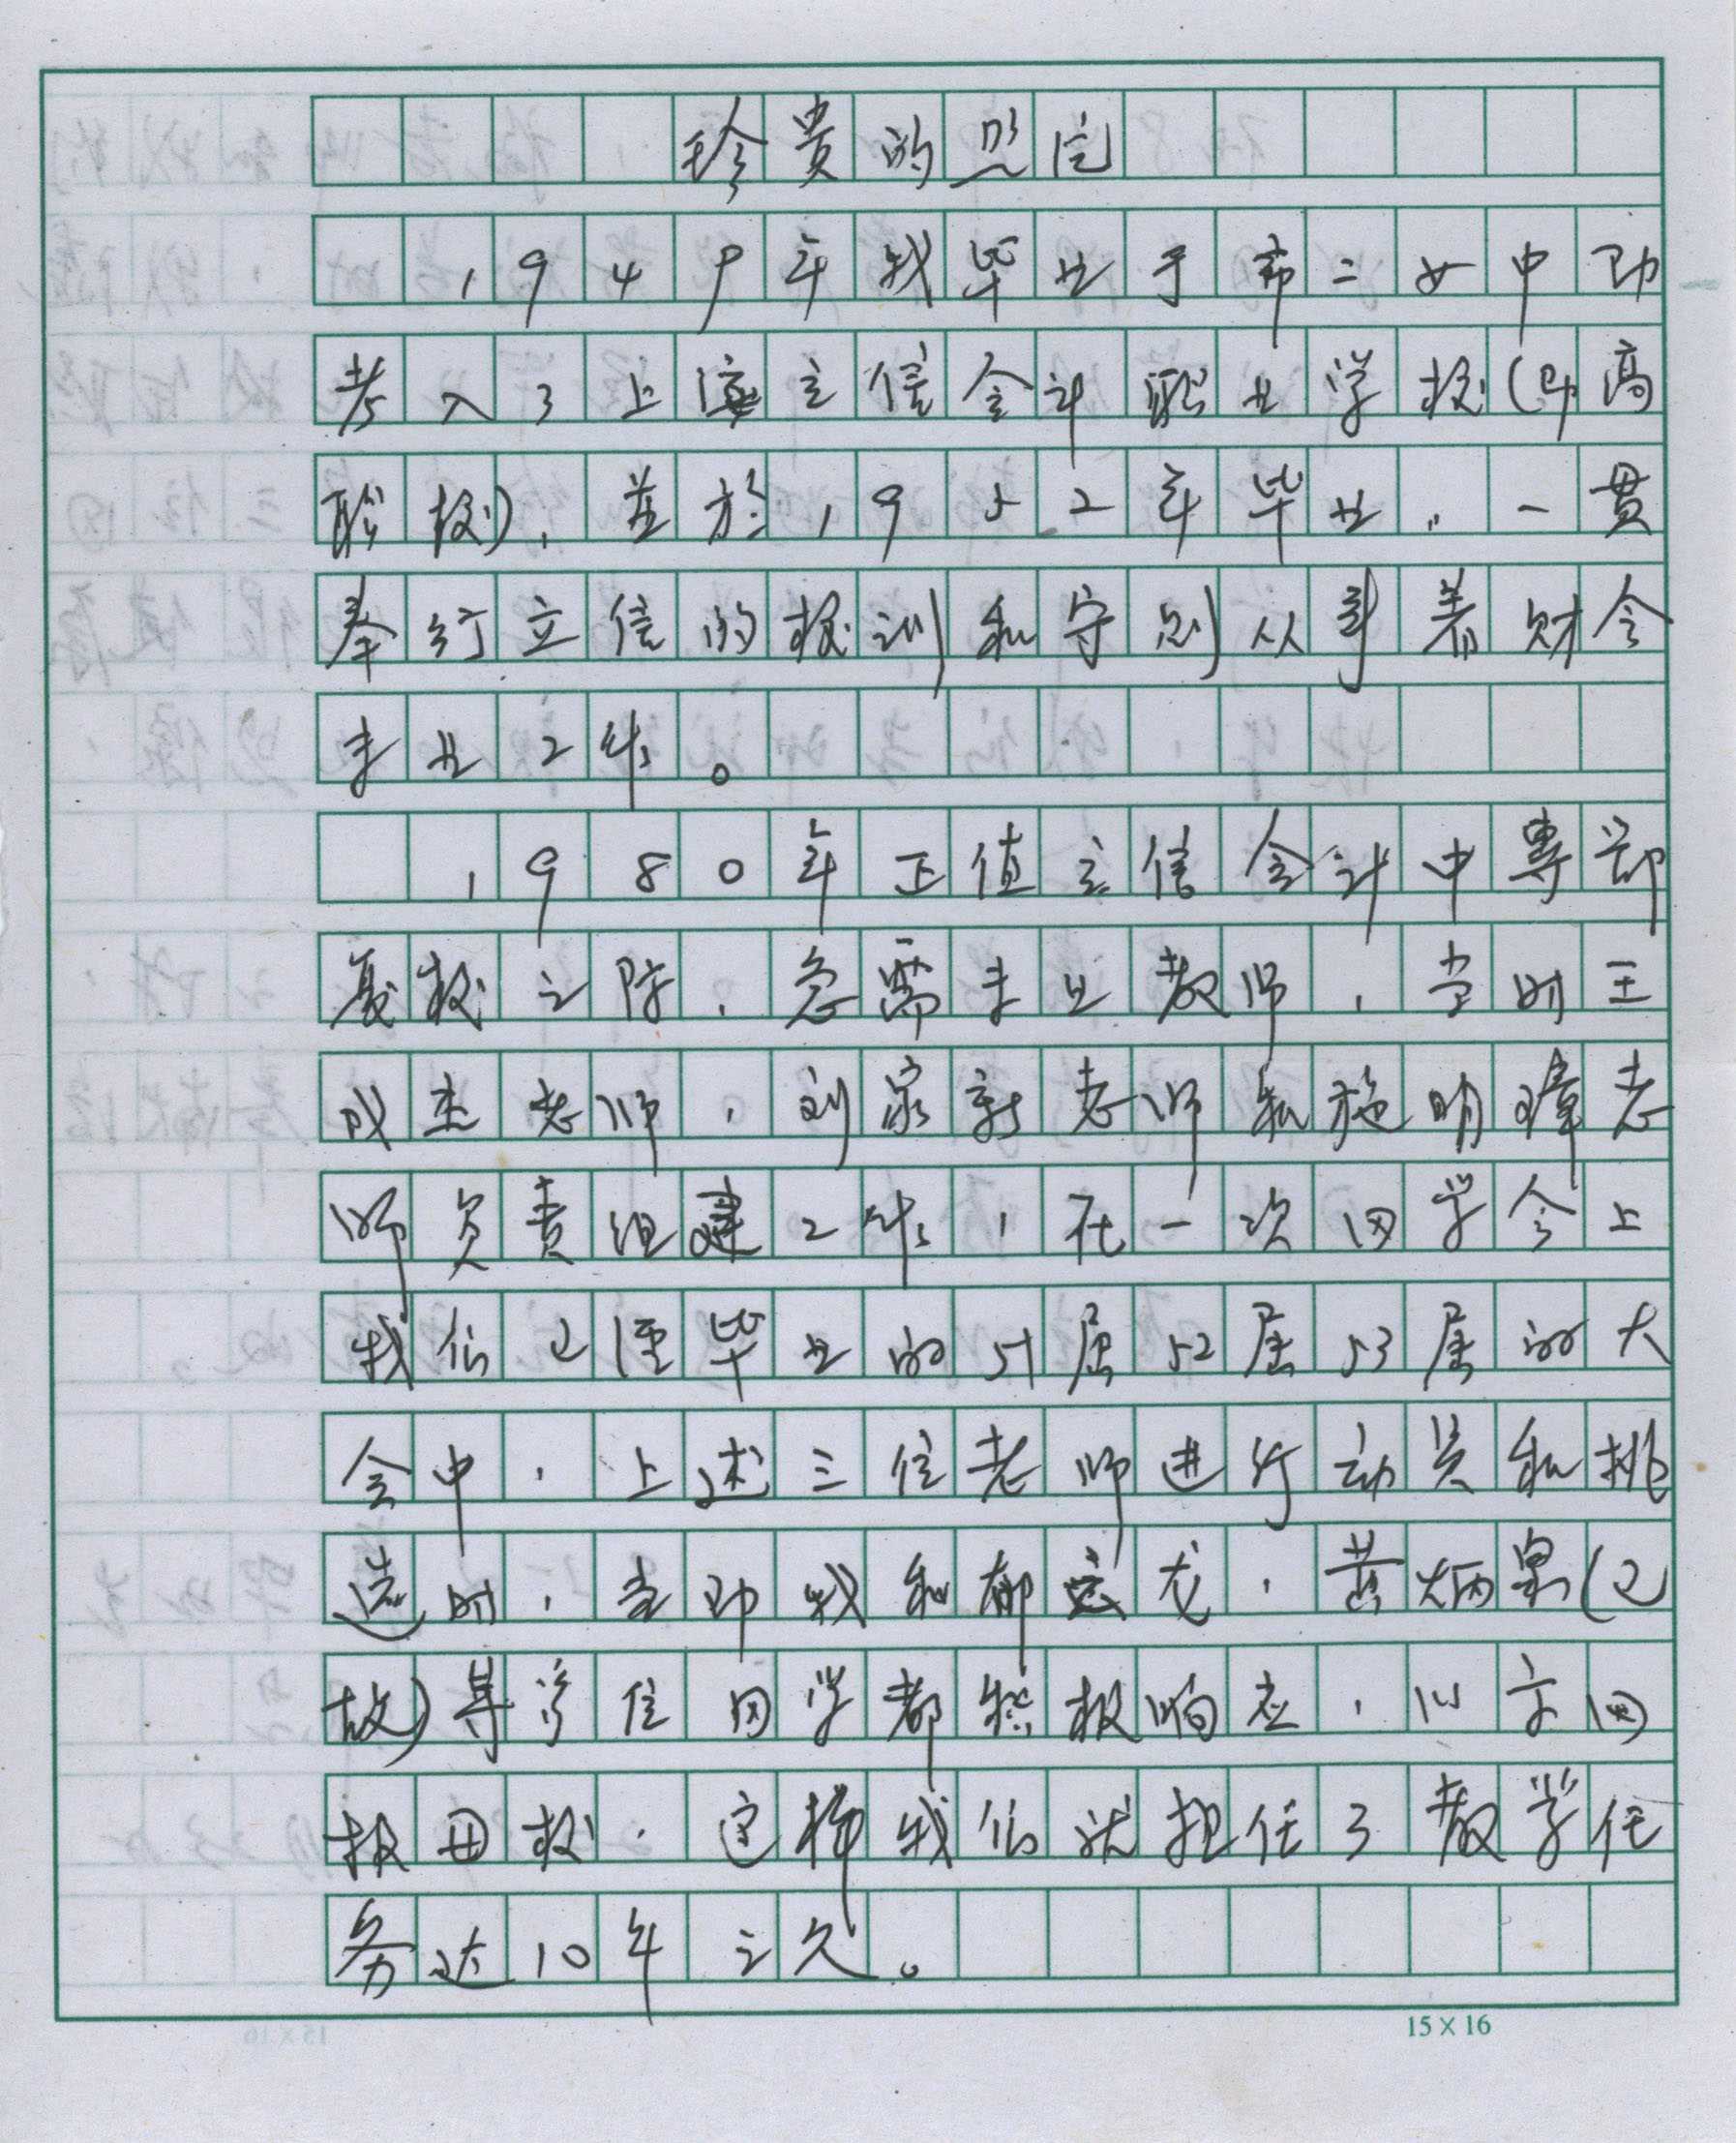 珍贵的照片
1949年我毕业于市二女中即
考入了上海立信会计职业学校(即高
职校),並於1952年毕业,一贯
奉行立信的校训和守则从事着财会
专业工作。
1980年正值立信会计中專部
复校之际,急需专业教师,当时王
成杰老师,刘家新老师和施明璋老
师负责组建工作,在一次同学会上
我们已经毕业的51届52届53届的大
会中,上述三位老师进行动员和挑
选时,立即我和郁忠龙,黄炳泉(已
故)等位同学都积极响应,以示回
报母校.这样我们就担任了教学任
务达10年之久。
15×16